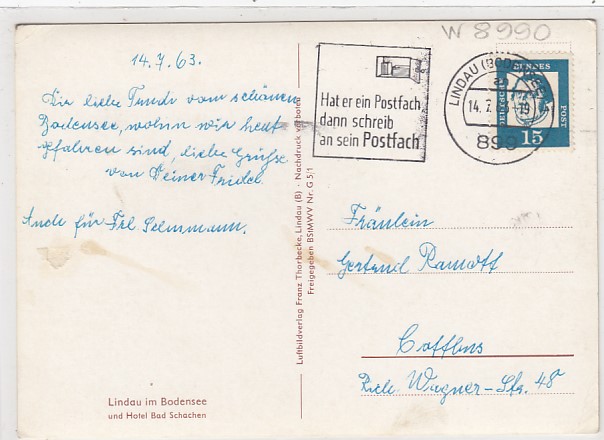 W 8990
14.7.63.
Dir liebe Trude vom schönen
Bodensee, wohin wir heut
gefahren sind, liebe Grüße
von Deiner Friedel.
Auch für Frl.
Hat er ein Postfach,
dann schreib
an sein Postfach
LINDAU (BODENSEE)
14. 7. 63-19
899
DEUTSCHE
BUNDES
POST
15
Luftbildverlag Franz Thorbecke, Lindau (B) · Nachdruck verboten
Freigegeben BStMWV Nr. G 5/1
Fräulein
Gertrud Ramott
Cottbus
Rich. Wagner-Str. 48
Lindau im Bodensee
und Hotel Bad Schachen